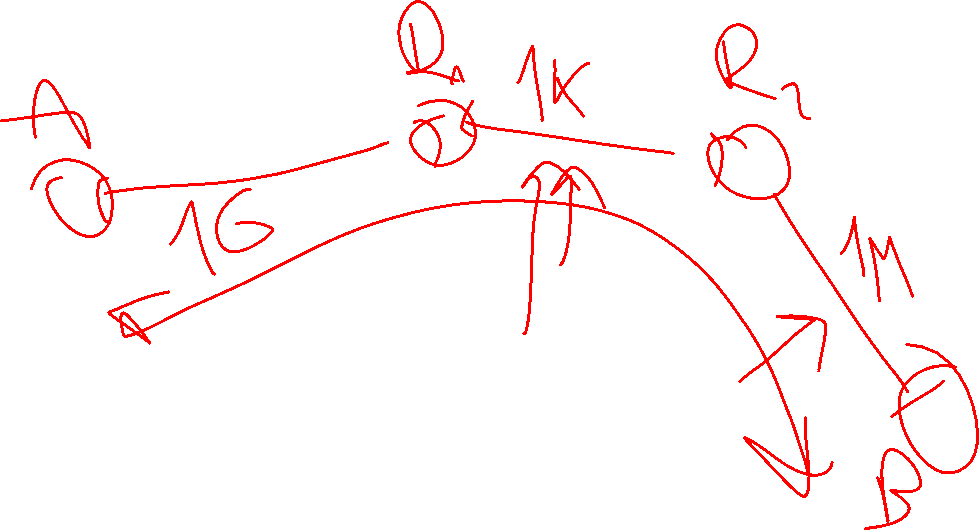 A
R₁
1K
R₂
1G
1M
B